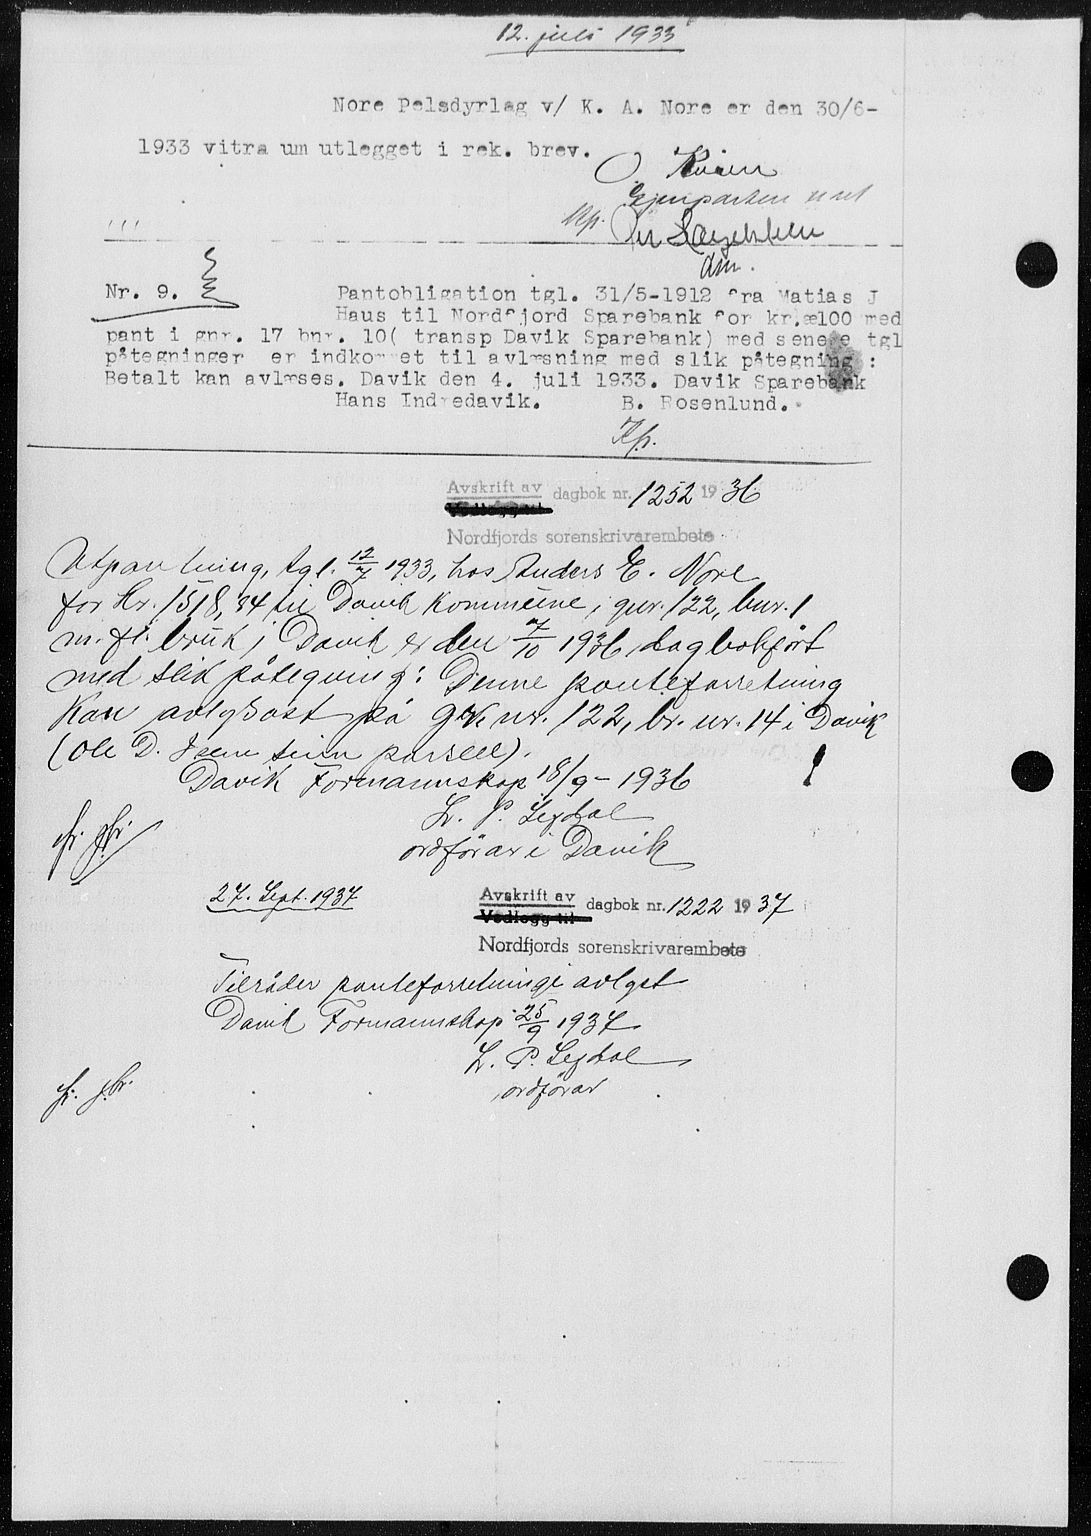 12. juli 1933
Nore Pelsdyrlag v/ K. A. Nore er den 30/6-
1933 vitra um utlegget i rek. brev.
O.
Gjenparten
Kp.
dm.
Nr. 9.
Pantobligation tgl. 31/5-1912 fra Matias J
Haus til Nordfjord Sparebank for kr.æ100 med
pant i gnr. 17 bnr. 10( transp Davik Sparebank) med senere tgl
påtegninger er indkommet til avlæsning med slik påtegning :
Betalt kan avlæses. Davik den 4. juli 1933. Davik Sparebank
Hans Indredavik. B. Rosenlund.
Kp.
Avskrift av
Vedlogg til dagbok nr. 1252 19 36
Nordfjords sorenskrivarembete
Utpantning, tgl. 12/7 1933, hos Anders E. Nore
for kr. 1518,34 til Davik Kommune, i gnr. 122, bnr. 1
m. fl. bruk i Davik er den 7/10 1936 dagbokført
med slik påtegning: Denne panteforretning
kan avlysast på gnr. 122, br. nr. 14 i Davik
(Ole D. sin parsell).
Davik Formannskap 18/9 - 1936
L. P. Legdal
ordførar i Davik
27. Sept. 1937
Avskrift av
Vedlogg til dagbok nr. 1222 19 37
Nordfjords sorenskrivarembete
Tilråder panteforretningi avlyst
Davik Formannskap 25/9 1937.
L. P. Legdal
ordførar